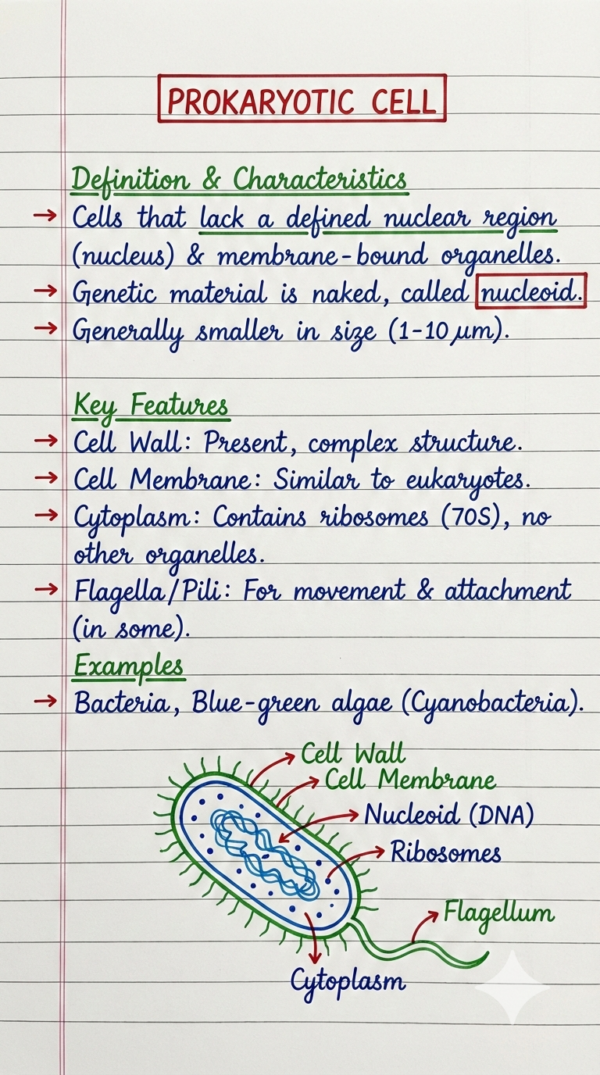 PROKARYOTIC CELL
Definition & Characteristics
→ Cells that lack a defined nuclear region
(nucleus) & membrane-bound organelles.
→ Genetic material is naked, called nucleoid.
→ Generally smaller in size (1-10 µm).
Key Features
→ Cell Wall: Present, complex structure.
→ Cell Membrane: Similar to eukaryotes.
→ Cytoplasm: Contains ribosomes (70S), no
other organelles.
→ Flagella/Pili: For movement & attachment
(in some).
Examples
→ Bacteria, Blue-green algae (Cyanobacteria).
Cell Wall
Cell Membrane
Nucleoid (DNA)
Ribosomes
Flagellum
Cytoplasm